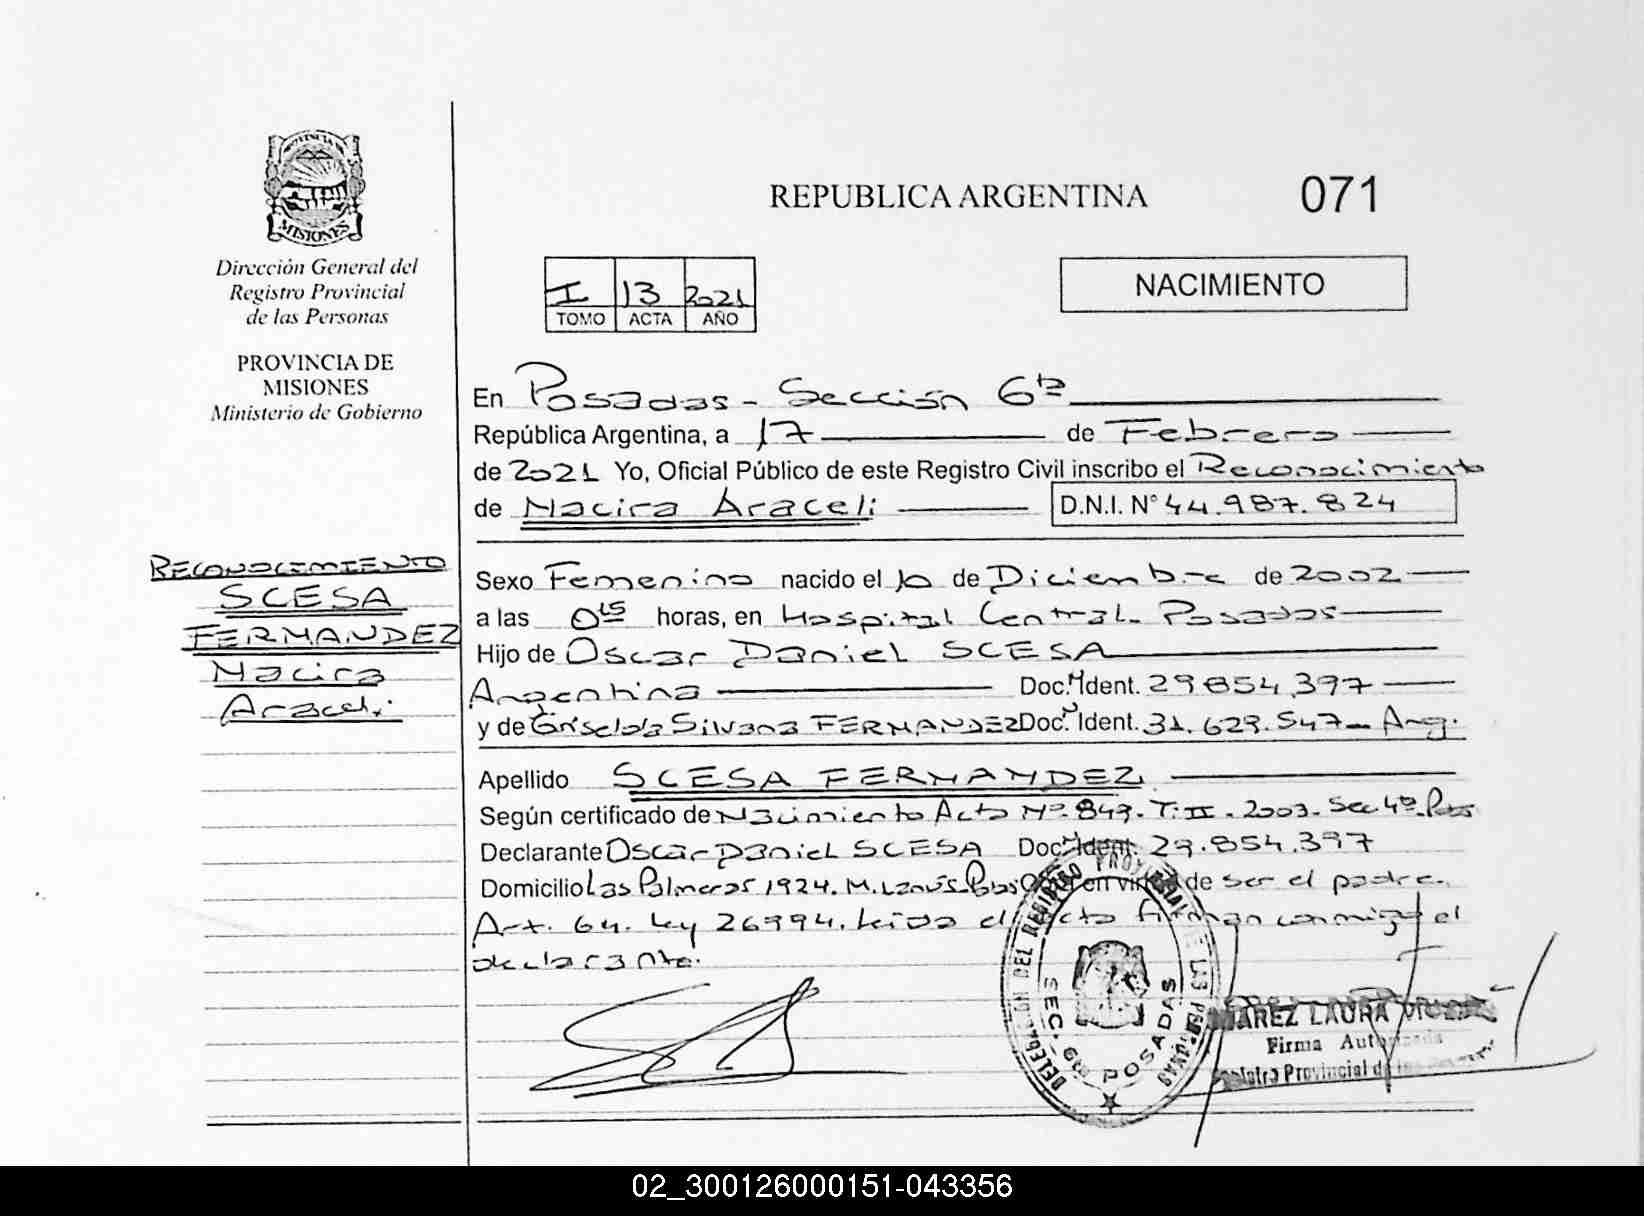 PROVINCIA DE
MISIONES
Dirección General del
Registro Provincial
de las Personas
PROVINCIA DE
MISIONES
Ministerio de Gobierno
REPUBLICA ARGENTINA
071
I 13 2021
TOMO ACTA AÑO
NACIMIENTO
En Posadas - Sección 6ta
República Argentina, a 17 de Febrero
de 2021 Yo, Oficial Público de este Registro Civil inscribo el Reconocimiento
de Nacira Araceli D.N.I. N° 44.987.824
RECONOCIMIENTO
SCESA
FERNANDEZ
Nacira
Araceli
Sexo Femenino nacido el 10 de Diciembre de 2002
a las 0:15 horas, en Hospital Central - Posadas
Hijo de Oscar Daniel SCESA
Argentina Doc. Ident. 29.854.397
y de Griselda Silvana FERNANDEZ Doc. Ident. 31.629.547 - Arg.
Apellido SCESA FERNANDEZ
Según certificado de Nacimiento Acta Nº 849. T. II. 2003. Sec 4ª Pdas
Declarante Oscar Daniel SCESA Doc. Ident. 29.854.397
Domicilio Las Palmeras 1924. M. Lanús - Pdas Obra en virtud de ser el padre.
Art. 64. Ley 26994. Leída el Acta firman conmigo el
declarante.
DELEGACION DEL REGISTRO PROVINCIAL DE LAS PERSONAS
SEC. 6ta POSADAS
LAURA
Firma Autorizada
Registro Provincial de las Personas
02_300126000151-043356